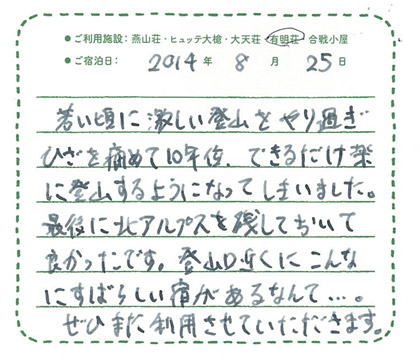 ●ご利用施設：燕山荘・ヒュッテ大槍・大天荘・有明荘・合戦小屋
●ご宿泊日： 2014 年 8 月 25 日
若い頃に激しい登山をやり過ぎ
ひざを痛めて10年位、できるだけ楽
に登山するようになってしまいました。
最後に北アルプスを残しておいて
良かったです。登山口近くにこんな
にすばらしい宿があるなんて…。
ぜひまた利用させていただきます。